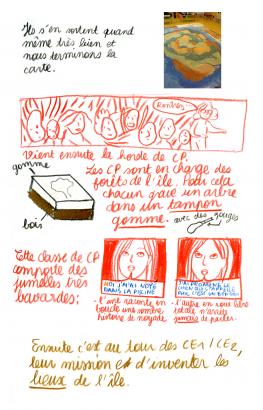 Ils s'en sortent quand
même très bien et
nous terminons la
carte.
Vient ensuite la horde de CP.
gomme
Les CP sont en charge des
forêts de l'île. Pour cela
chacun grave un arbre
dans un tampon
gomme.
avec des gouges
bois
Cette classe de CP
comporte des
jumelles très
bavardes:
MOI J'M'AI NOYÉ
DANS LA PISCINE
J'AI PROMENÉ LE
- l'une raconte en
boucle une sombre
histoire de noyade.
- l'autre en roue libre
totale n'arrête
jamais de parler.
Ensuite c'est au tour des CE1/CE2,
leur mission est d'inventer les
lieux de l'île.